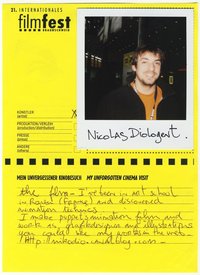 21. INTERNATIONALES
filmfest
BRAUNSCHWEIG
KÜNSTLER
ARTIST
PRODUKTION/VERLEIH
(production/distribution)
PRESSE
(press)
ANDERE
(others)
Nicolas Diologent.
MEIN UNVERGESSENER KINOBESUCH MY UNFORGOTTEN CINEMA VISIT
the film - I've been in art school
in (France) and discovered
animation
I make puppets animation films and
work as graphicdesigner and illustrations
you could see my on the web-
http://